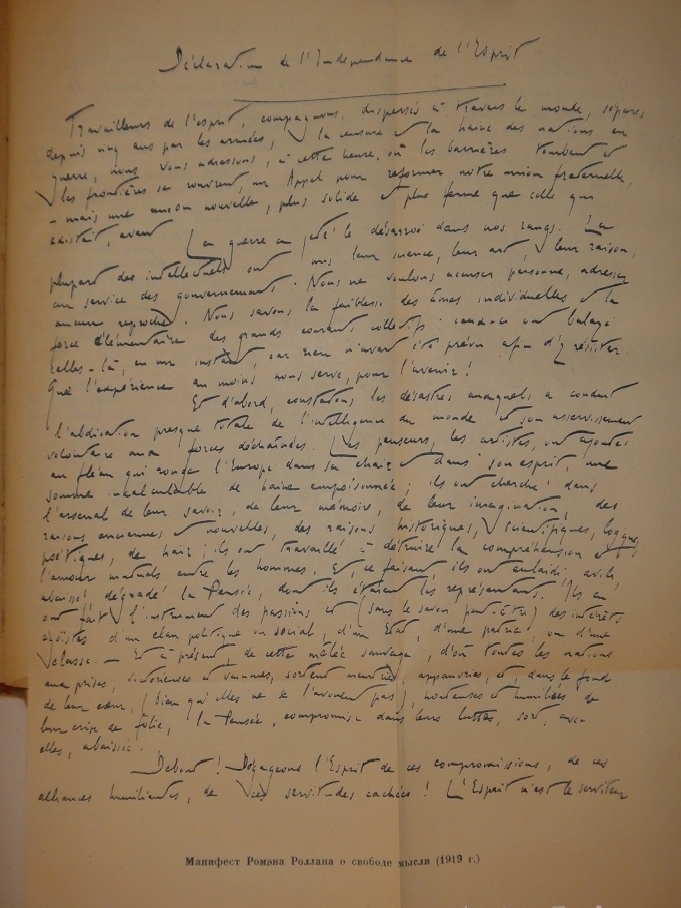 Déclaration de l'Indépendance de l'Esprit
Travailleurs de l'esprit, compagnons, dispersés à travers le monde, séparés
depuis cinq ans par les armées, la censure et la haine des nations en
guerre, nous vous adressons, à cette heure où les barrières tombent et
les frontières se rouvrent, un Appel pour reformer notre union fraternelle,
- mais une union nouvelle, plus solide et plus ferme que celle qui
existait avant.
La guerre a jeté le désarroi dans nos rangs. La
plupart des intellectuels ont mis leur science, leur art, leur raison,
au service des gouvernements. Nous ne voulons accuser personne, adresser
aucun reproche. Nous savons la faiblesse des âmes individuelles et la
force élémentaire des grands courants collectifs: ceux-ci ont balayé
celles-là, en un instant, car rien n'avait été prévu afin d'y résister.
Que l'expérience au moins nous serve, pour l'avenir!
Et d'abord, constatons les désastres auxquels a conduit
l'abdication presque totale de l'intelligence du monde et son asservissement
volontaire aux forces déchaînées. Les penseurs, les artistes, ont ajouté
au fléau qui ronge l'Europe dans sa chair et dans son esprit, une
somme incalculable de haine empoisonnée; ils ont cherché dans
l'arsenal de leur savoir, de leur mémoire, de leur imagination, des
raisons anciennes et nouvelles, des raisons historiques, scientifiques, logiques,
poétiques, de haïr; ils ont travaillé à détruire la compréhension et
l'amour mutuels entre les hommes. Et ce faisant, ils ont enlaidi, avili,
abaissé, dégradé la Pensée, dont ils étaient les représentants. Ils en
ont fait l'instrument des passions et (sans le savoir peut-être) des intérêts
égoïstes d'un clan politique ou social, d'un État, d'une patrie, ou d'une
classe. - Et à présent, de cette mêlée sauvage, d'où toutes les nations
aux prises, victorieuses et vaincues, sortent meurtries, appauvries, et, dans le fond
de leur cœur, (bien qu'elles ne se l'avouent pas), honteuses et humiliées de
leur crise de folie, la Pensée, compromise dans leurs luttes, sort, avec
elles, abaissée.
Debout! Dégageons l'Esprit de ces compromissions, de ces
alliances humiliantes, de ces servitudes cachées! L'Esprit n'est le serviteur
Манифест Ромэна Роллана о свободе мысли (1919 г.)